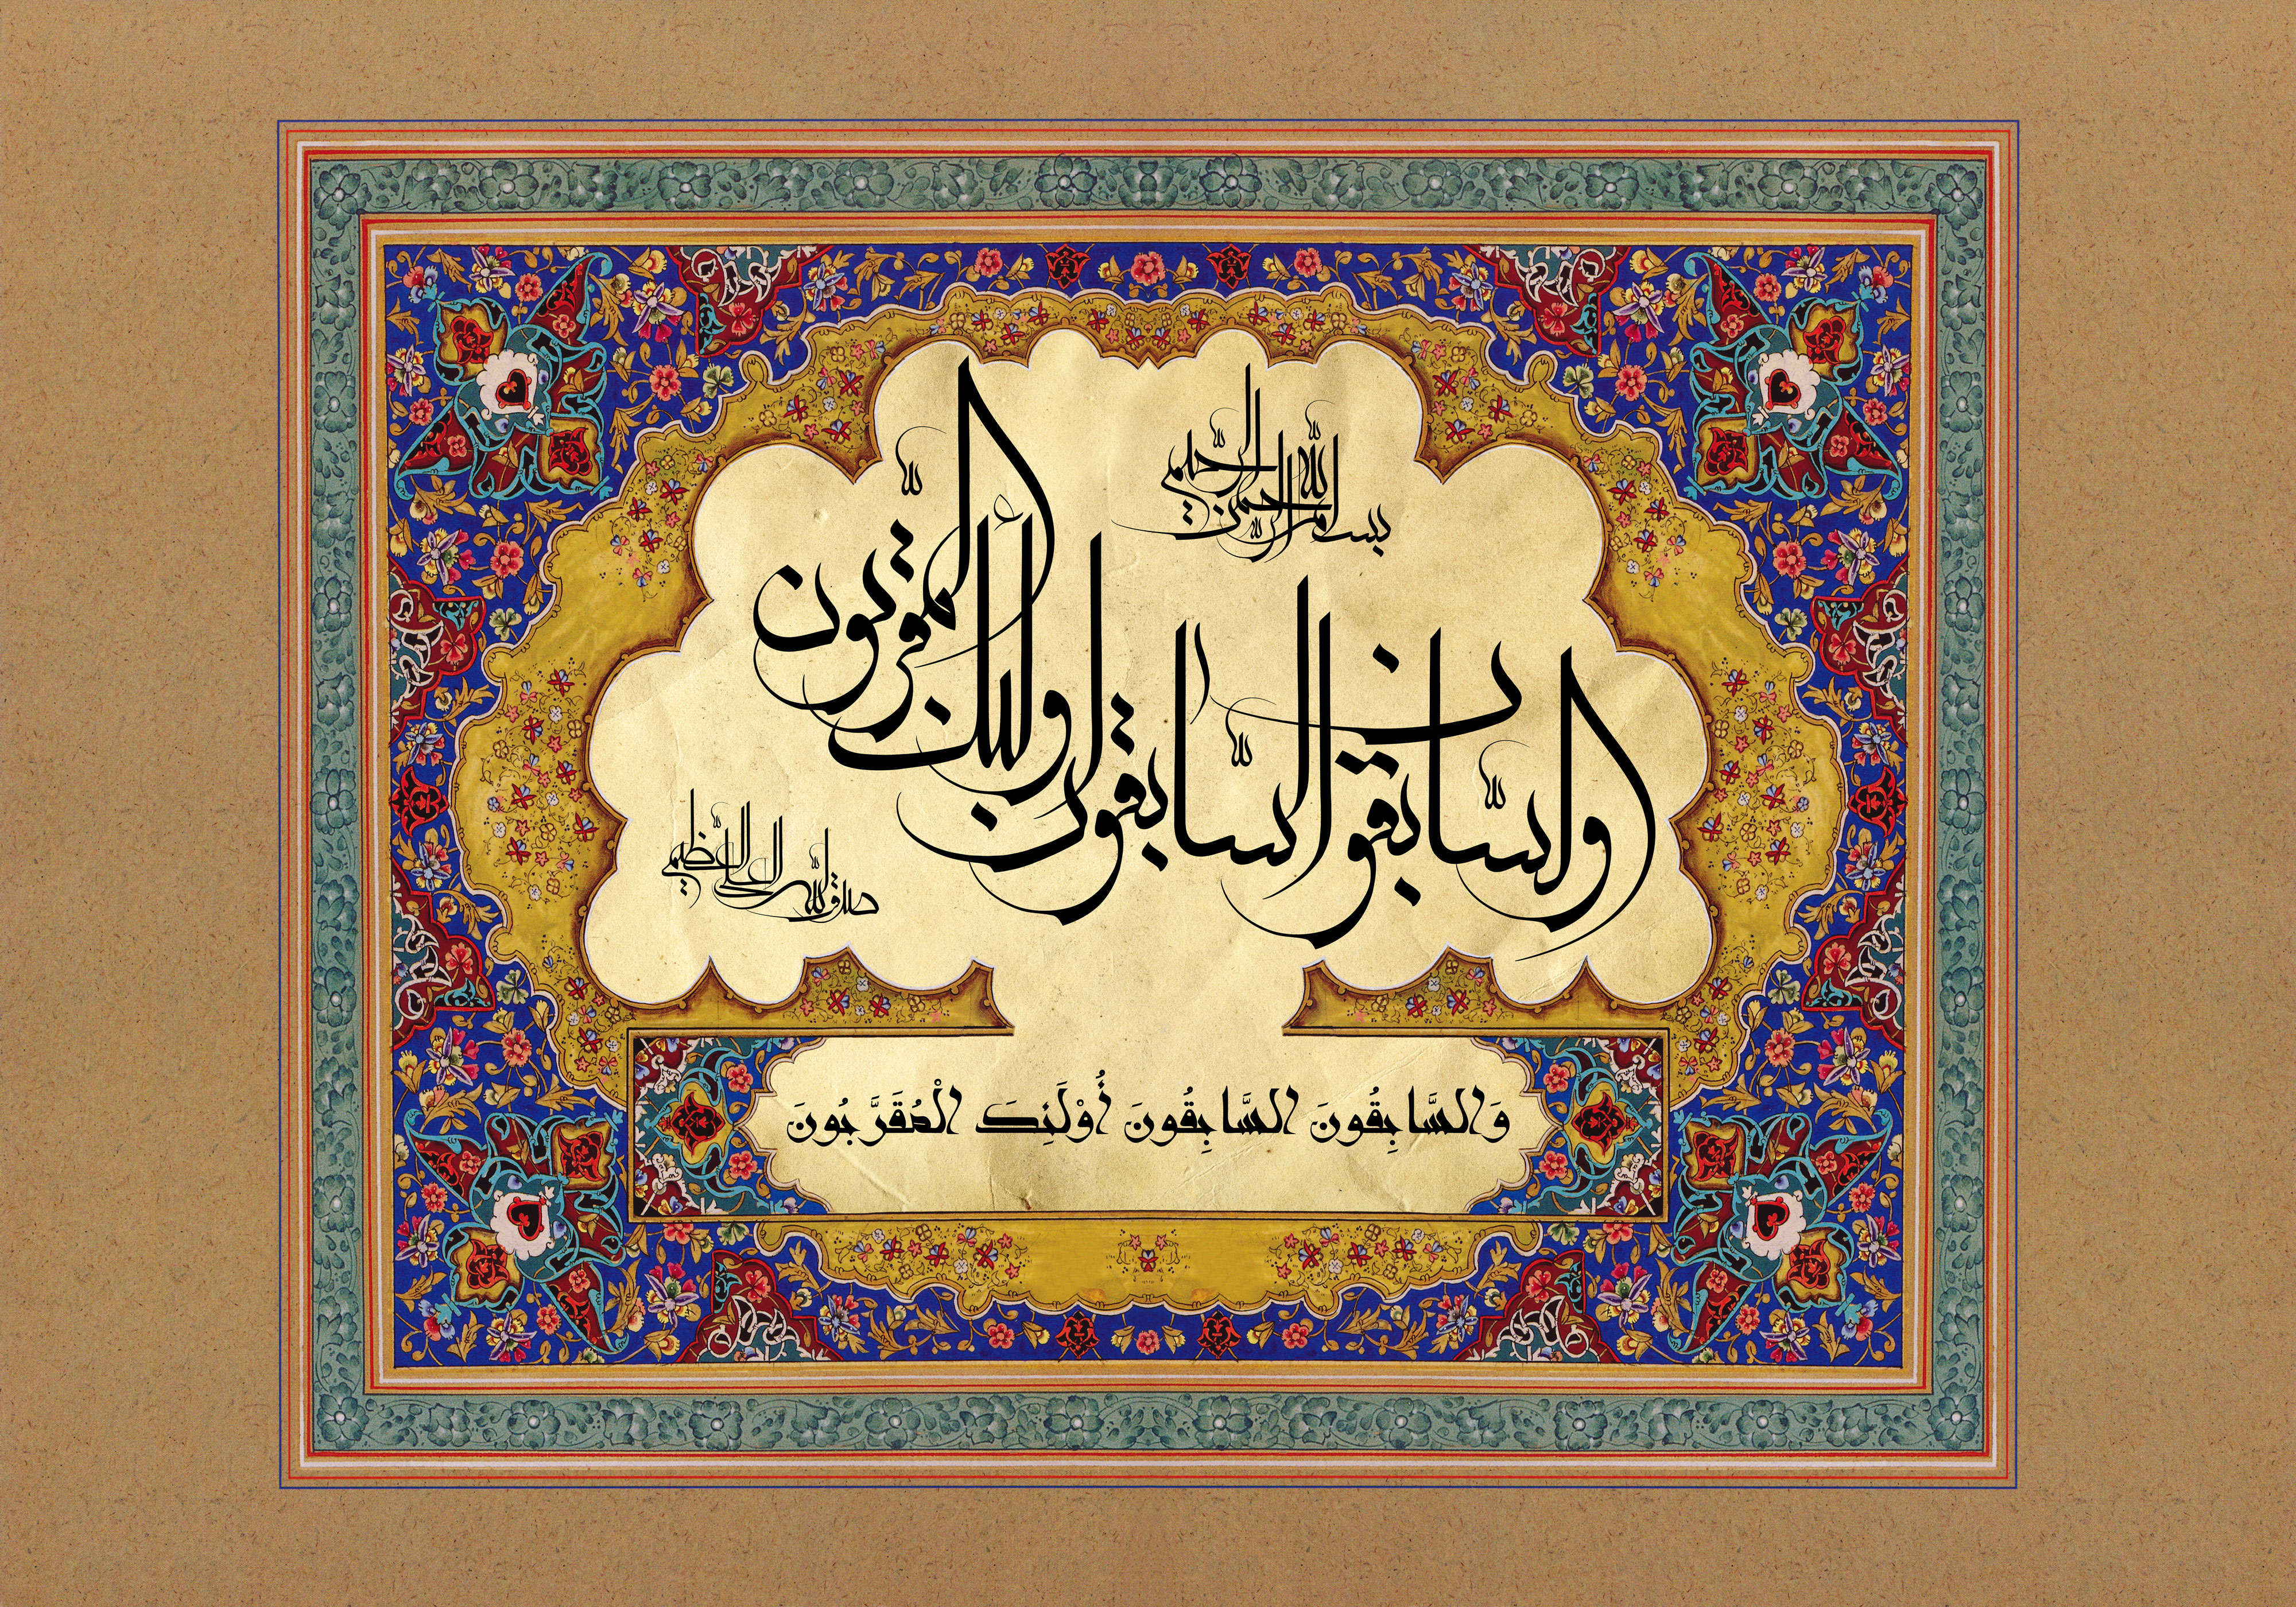 بسم الله الرحمن الرحیم
والسّابقون السّابقون اولئک المقربون
صدق الله العلی العظیم
وَالسَّابِقُونَ السَّابِقُونَ أُوْلَئِكَ الْمُقَرَّبُونَ